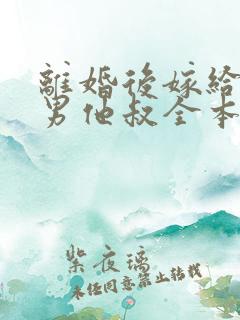 離婚後嫁給
男他叔全本
紫夜璃
未经同意禁止转载